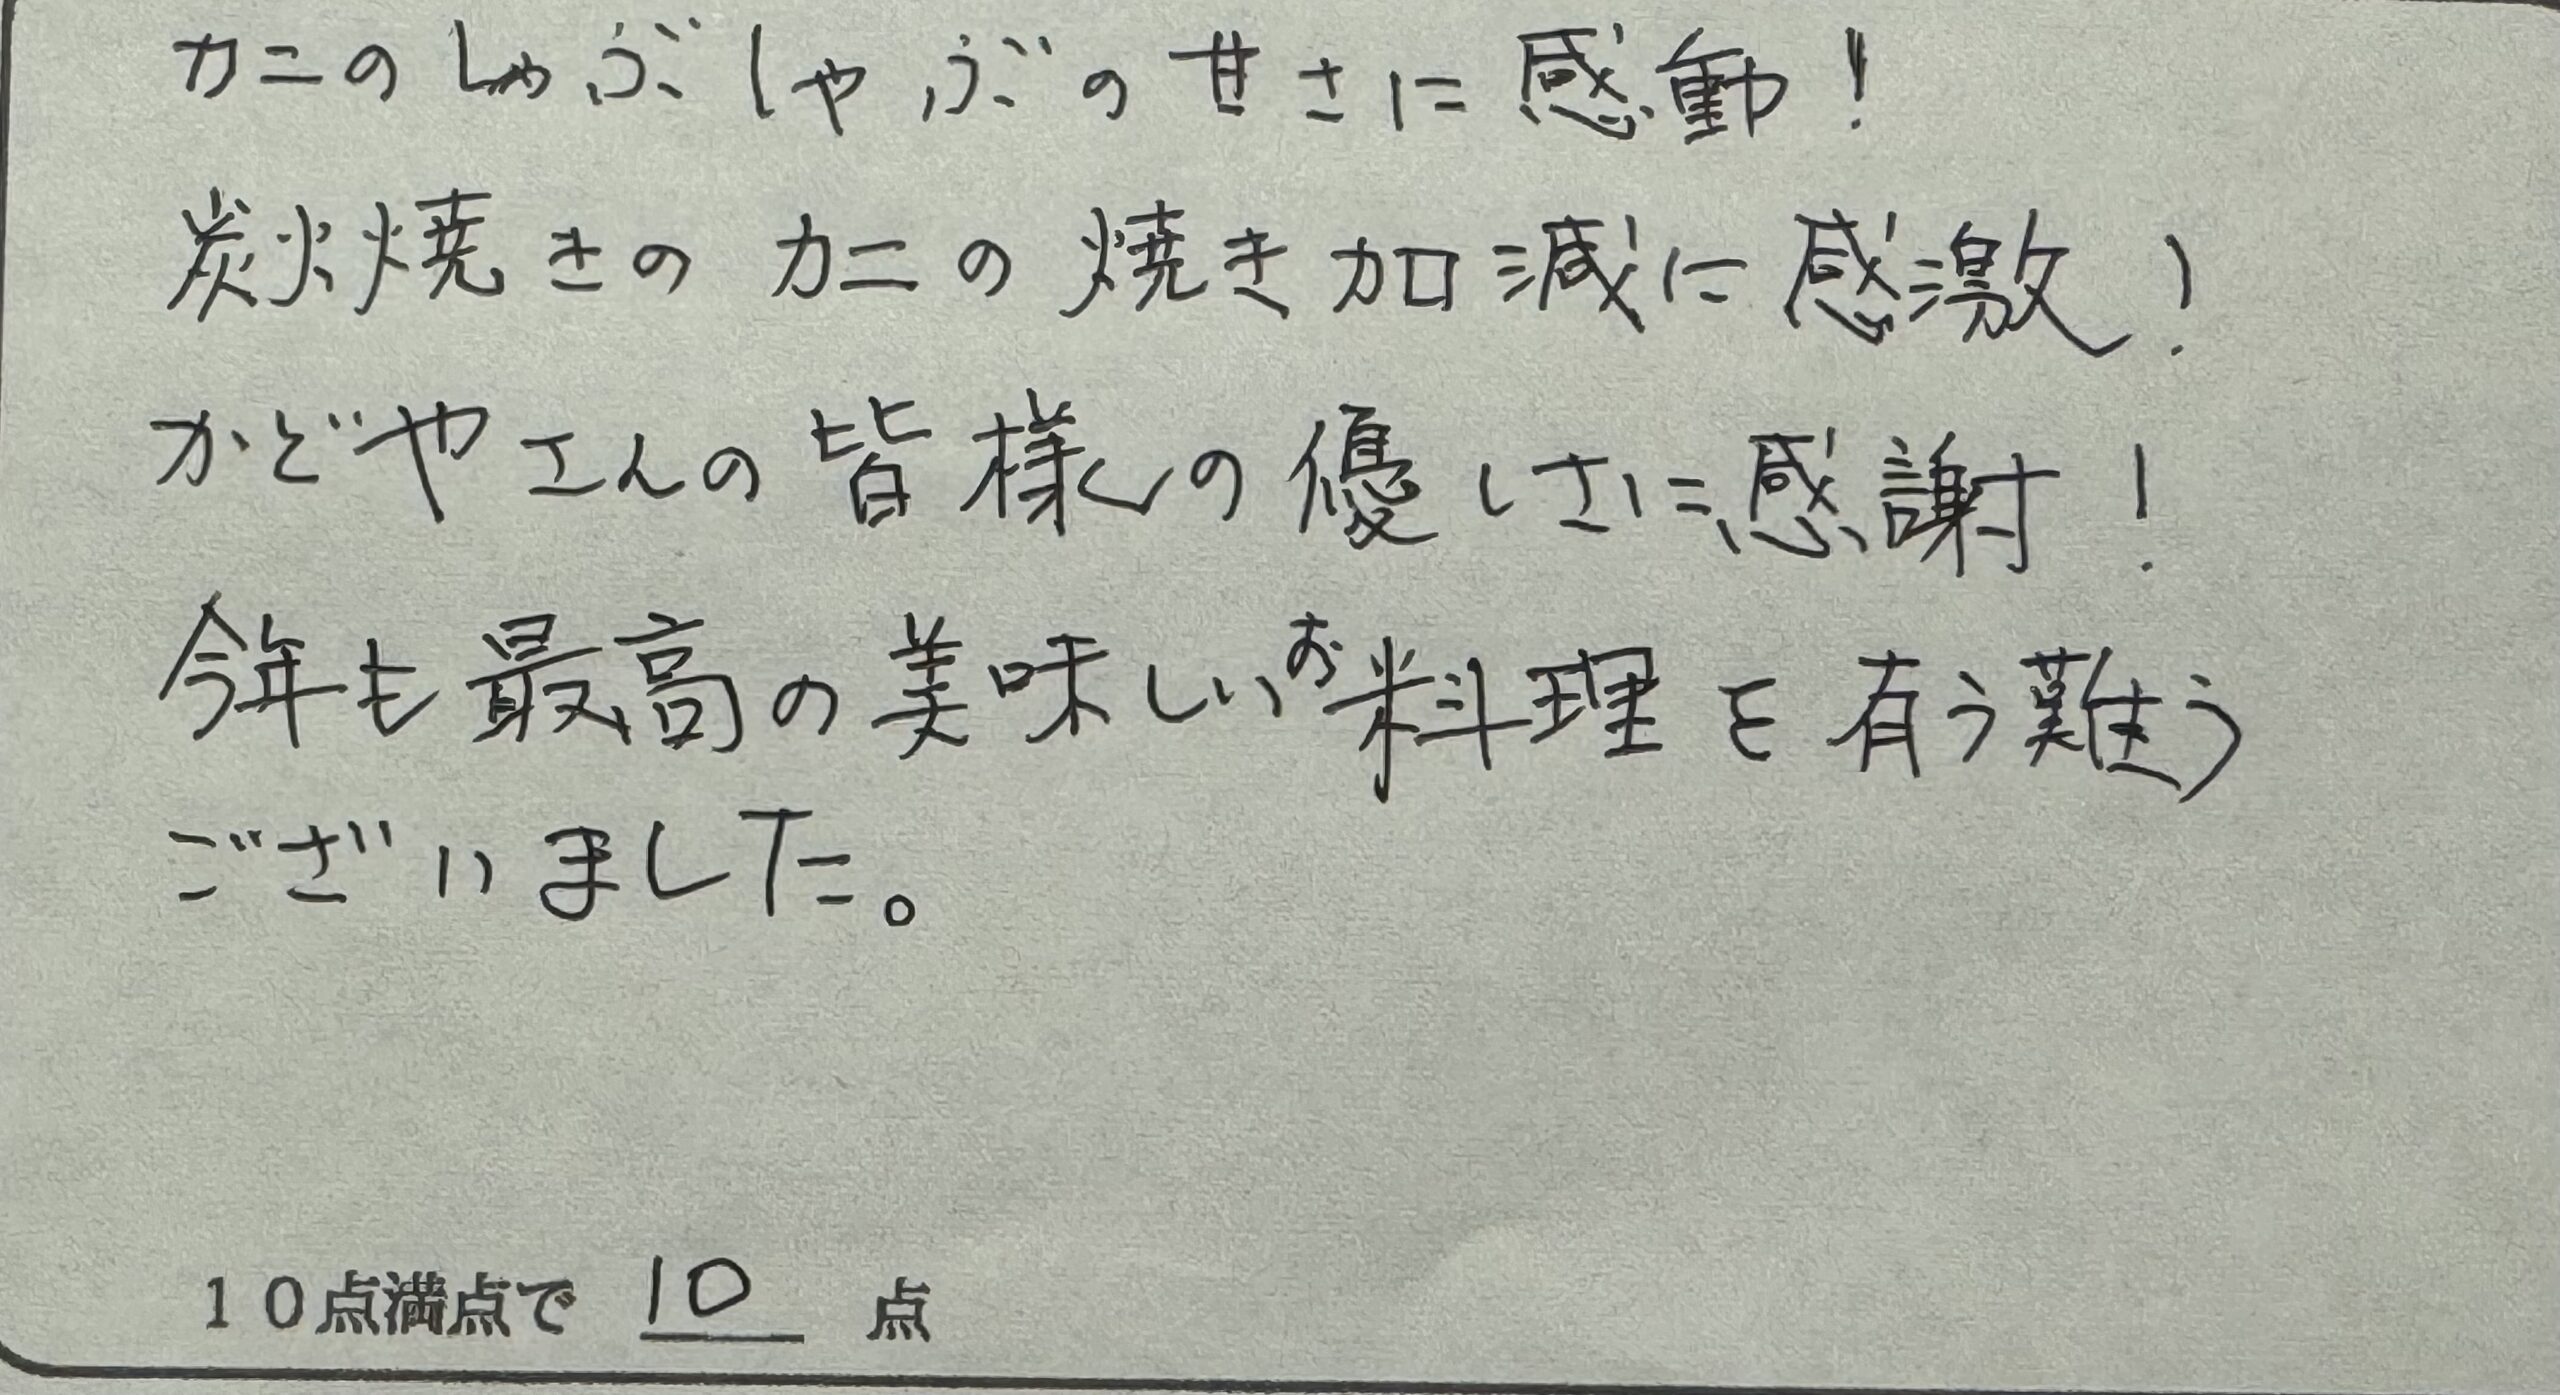 カニのしゃぶしゃぶの甘さに感動!
炭火焼きのカニの焼き加減に感激!
かどやさんの皆様の優しさに感謝!
今年も最高の美味しいお料理を有う難う
ございました。
10点満点で 10 点